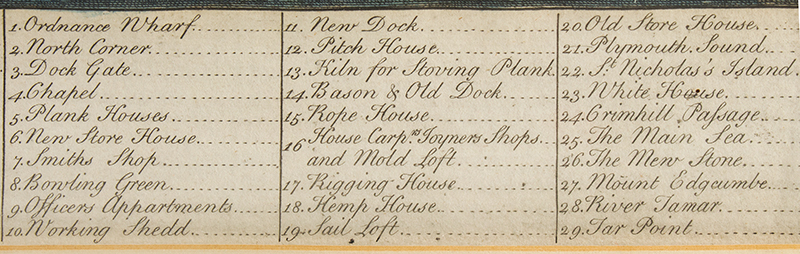 1. Ordnance Wharf
2. North Corner
3. Dock Gate
4. Chapel
5. Plank Houses
6. New Store House
7. Smiths Shop
8. Bowling Green
9. Officers Appartments
10. Working Shedd
11. New Dock
12. Pitch House
13. Kiln for Stoving Plank
14. Bason & Old Dock
15. Rope House
16. House Carprs. Joyners Shops
and Mold Loft
17. Rigging House
18. Hemp House
19. Sail Loft
20. Old Store House
21. Plymouth Sound
22. St. Nicholas's Island
23. White House
24. Crimhill Paſsage
25. The Main Sea
26. The Mew Stone
27. Mount Edgcumbe
28. River Tamar
29. Tar Point